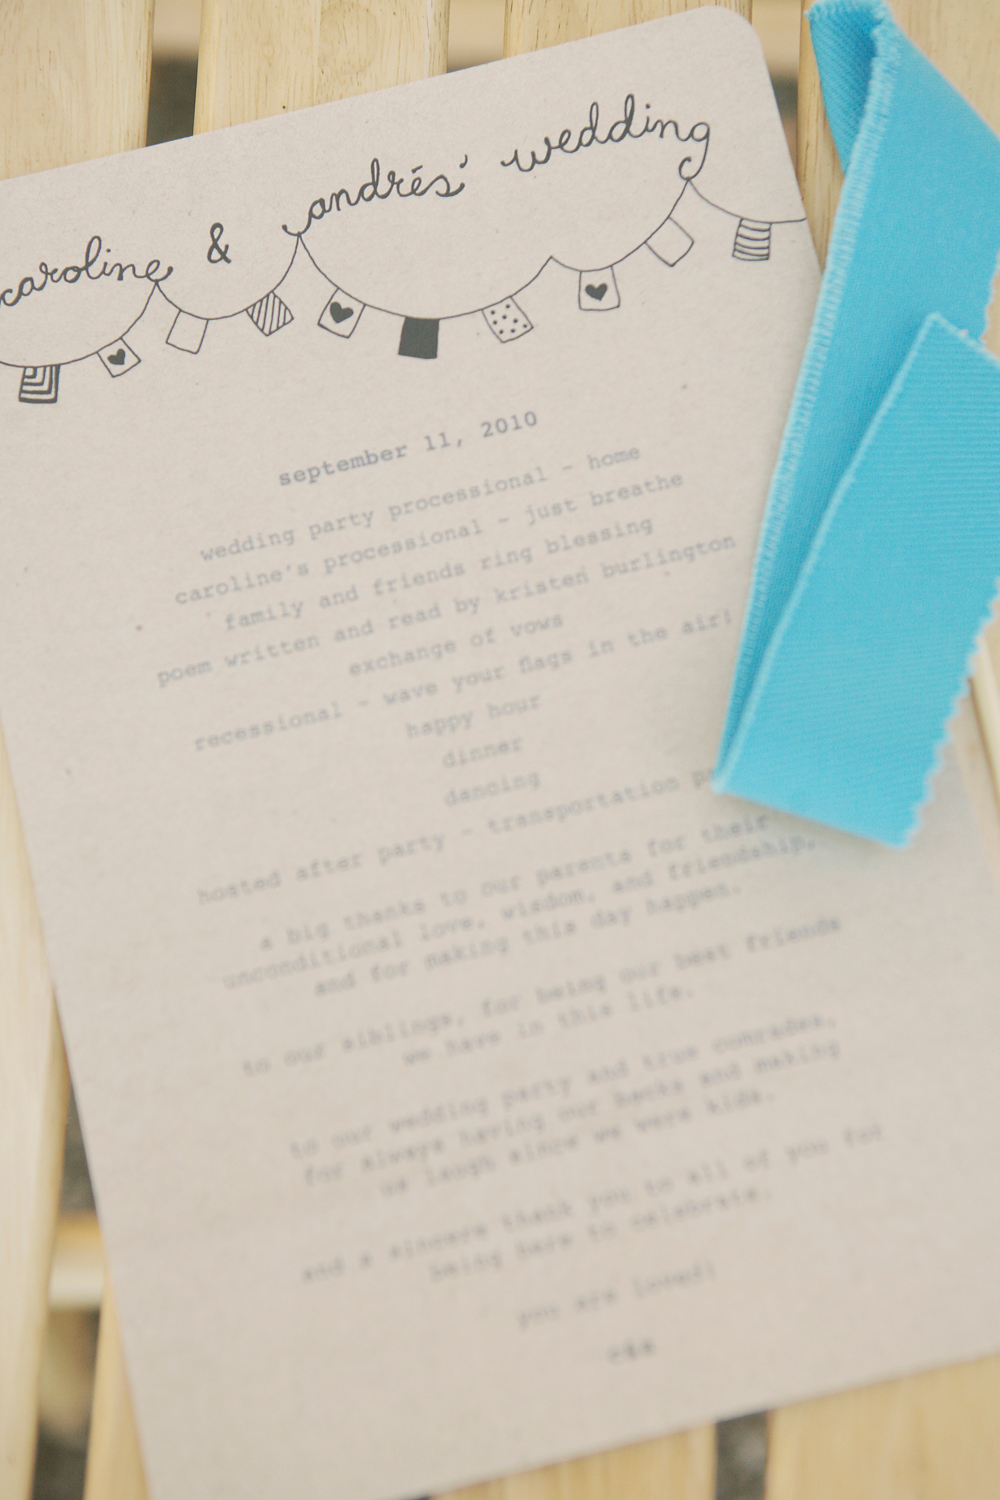 caroline & andrés' wedding
september 11, 2010
wedding party processional - home
caroline's processional - just breathe
family and friends ring blessing
poem written and read by kristen burlington
exchange of vows
recessional - wave your flags in the air!
happy hour
dinner
dancing
hosted after party - transportation
a big thanks to our parents for their
unconditional love, wisdom, and friendship,
and for making this day happen.
to our siblings, for being our best friends
we have in this life.
to our wedding party and true comrades,
for always having our backs and making
us laugh since we were kids.
and a sincere thank you to all of you for
being here to celebrate.
you are loved!
c&a